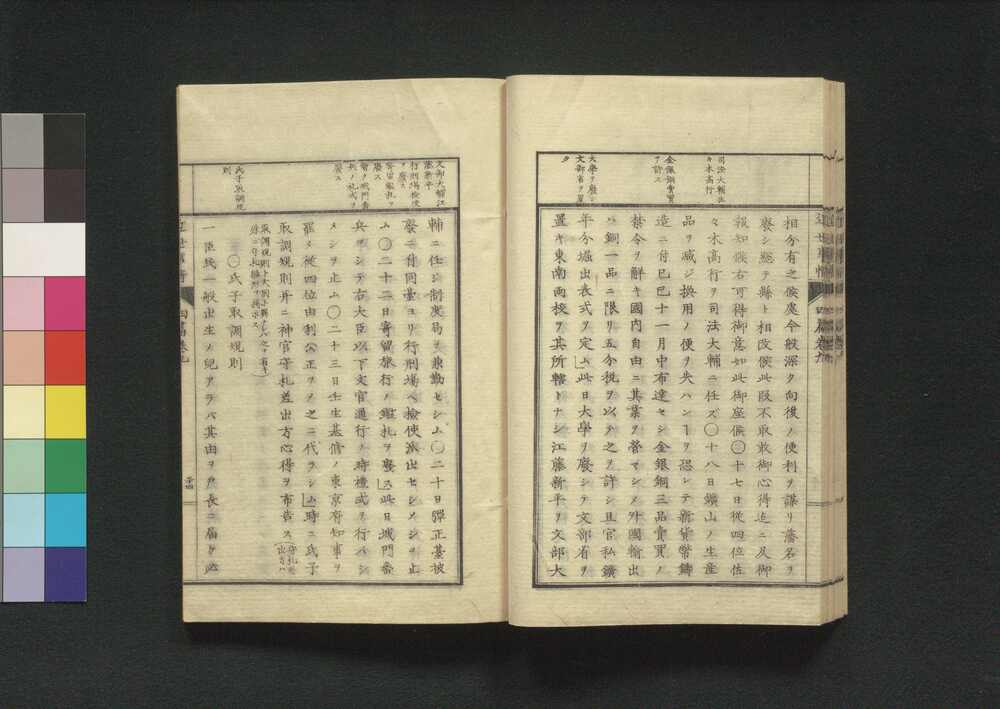 司法大輔佐
々木高行
金銀銅賣買
ヲ許ス
大學ヲ廢シ
文部省ヲ置
ク
相分有之候處今般深ク向後ノ便利ヲ謀リ藩名ヲ
廢シ總テ縣ト相改候此段不取敢御心得迄ニ及御
報知候右可得御意如此御座候〇十七日從四位佐
々木高行ヲ司法大輔ニ任ズ〇十八日鑛山ノ生產
品ヲ減ジ換用ノ便ヲ失ハンヿヲ恐レテ新貨幣鑄
造ニ付巳巳十一月中布達セシ金銀銅三品賣買ノ
禁令ヲ解キ國內自由ニ其業ヲ營マシメ外國輸出
ハ銅一品ニ限リ五分稅ヲ以テ之ヲ許シ且官私鑛
年分堀出表式ヲ定ム此日大學ヲ廢シテ文部省ヲ
置キ東南兩校ヲ其所轄トナシ江藤新平ヲ文部大
文部大輔江
藤新平
行刑場檢使
ヲ廢ス
寄留鑑札ヲ
廢ス
兵ノ礼式ヲ
廢ス
氏子取調規
則
輔ニ任シ制度局ヲ兼勤セシム〇二十日彈正臺被
廢ニ付同臺ヨリ行刑場ヘ檢使派出セシメシヲ止
ム〇二十二日寄留旅行ノ鑑札ヲ廢ス此日城門番
兵ヲシテ右大臣以下文官通行ノ時禮式ヲ行ハシ
メシヲ止ム〇二十三日壬生基修ノ東京府知事ヲ
罷メ從四位由利公正ヲ之ニ代ラシム時ニ氏子
取調規則幷ニ神官守札差出方心得ヲ布告ス
〇氏子取調規則
一臣民一般出生ノ兒アラバ其由ヲ戶長ニ屆ケ必
四編卷九